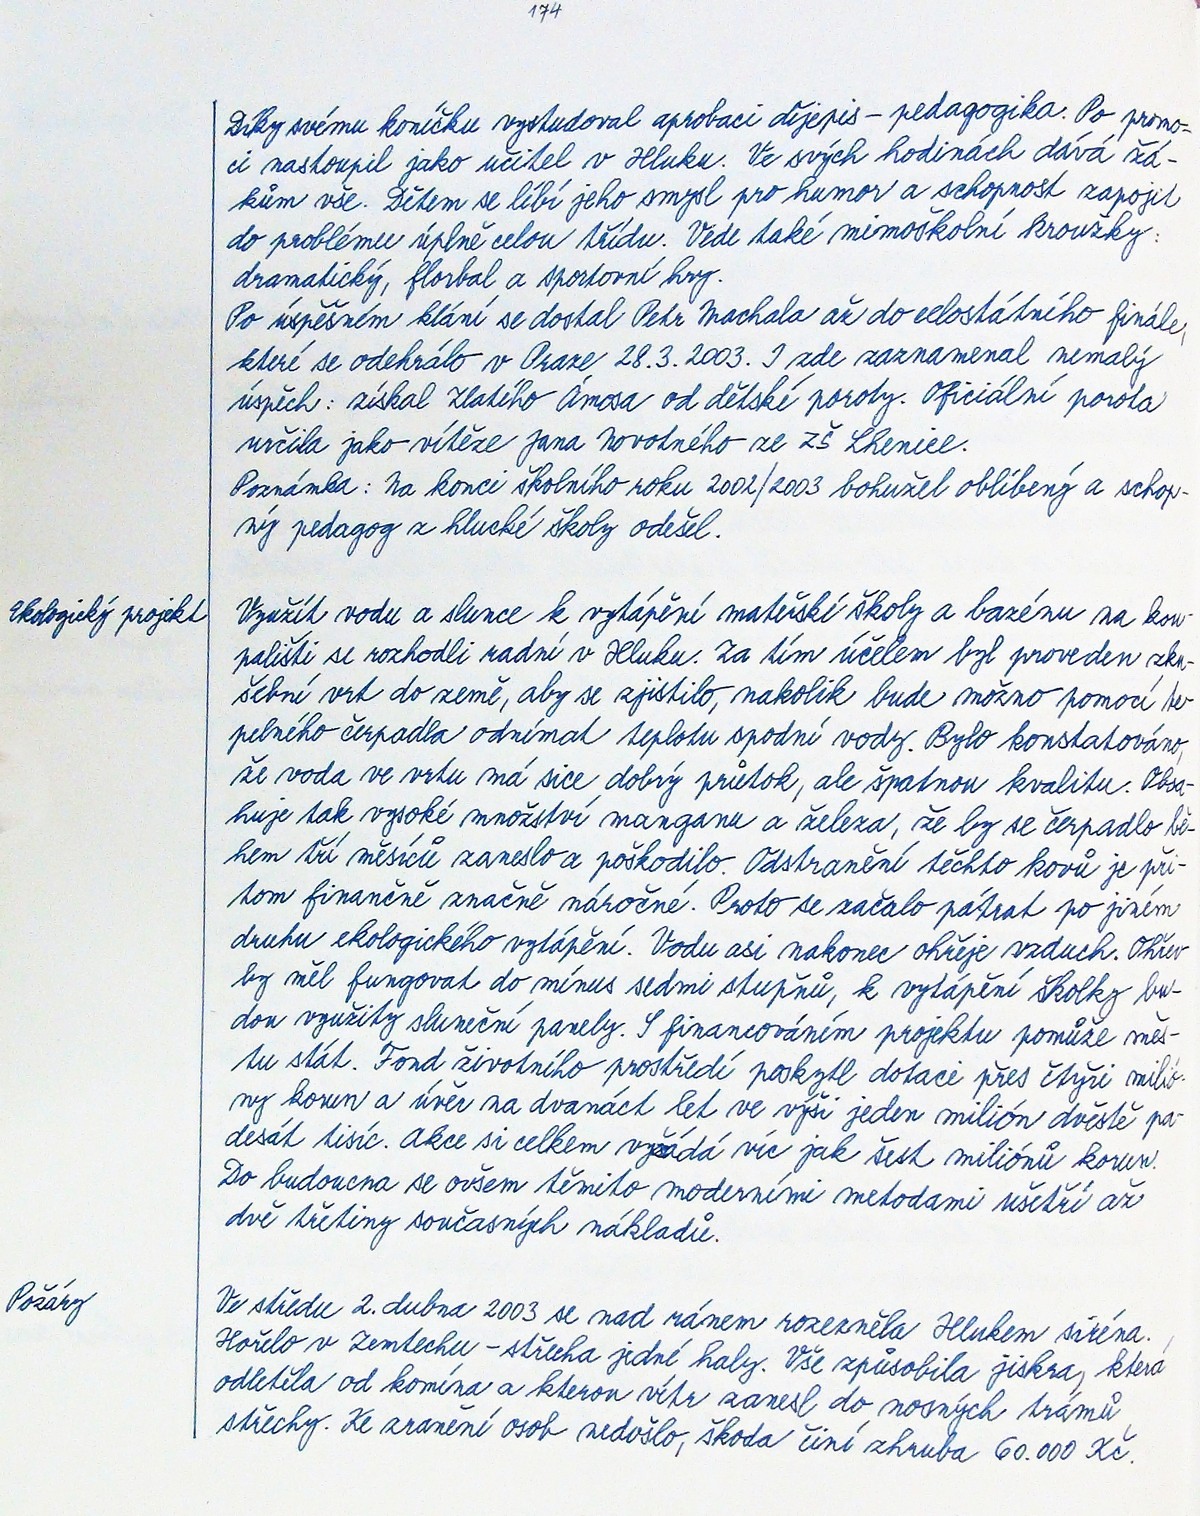 174
Díky svému koníčku vystudoval aprobaci dějepis – pedagogika. Po promo-
ci nastoupil jako učitel v Hluku. Ve svých hodinách dává žá-
kům vše. Dětem se líbí jeho smysl pro humor a schopnost zapojit
do problému úplně celou třídu. Vede také mimoškolní kroužky:
dramatický, florbal a sportovní hry.
Po úspěšném klání se dostal Petr Machala až do celostátního finále,
které se odehrálo v Praze 28.3.2003. I zde zaznamenal nemalý
úspěch: získal Zlatého Ámosa od dětské poroty. Oficiální porota
určila jako vítěze Jana Novotného ze ZŠ Lhenice.
Poznámka: Na konci školního roku 2002/2003 bohužel oblíbený a schop-
ný pedagog z hlucké školy odešel.
Ekologický projekt
Využít vodu a slunce k vytápění mateřské školy a bazénu na kou-
pališti se rozhodli radní v Hluku. Za tím účelem byl proveden zku-
šební vrt do země, aby se zjistilo, nakolik bude možno pomocí te-
pelného čerpadla odnímat teplotu spodní vody. Bylo konstatováno,
že voda ve vrtu má sice dobrý průtok, ale špatnou kvalitu. Obsa-
huje tak vysoké množství manganu a železa, že by se čerpadlo bě-
hem tří měsíců zaneslo a poškodilo. Odstranění těchto kovů je při-
tom finančně značně náročné. Proto se začalo pátrat po jiném
druhu ekologického vytápění. Vodu asi nakonec ohřeje vzduch. Ohřev
by měl fungovat do mínus sedmi stupňů, k vytápění školky bu-
dou využity sluneční panely. S financováním projektu pomůže měs-
tu stát. Fond životního prostředí poskytl dotaci přes čtyři milió-
ny korun a úvěr na dvanáct let ve výši jeden milión dvěstě pa-
desát tisíc. Akce si celkem vyžádá víc jak šest miliónů korun.
Do budoucna se ovšem těmito moderními metodami ušetří až
dvě třetiny současných nákladů.
Požáry
Ve středu 2. dubna 2003 se nad ránem rozezněla Hlukem siréna.
Hořelo v Zemtechu – střecha jedné haly. Vše způsobila jiskra, která
odletěla od komína a kterou vítr zanesl do nosných trámů
střechy. Ke zranění osob nedošlo, škoda činí zhruba 60.000 Kč.